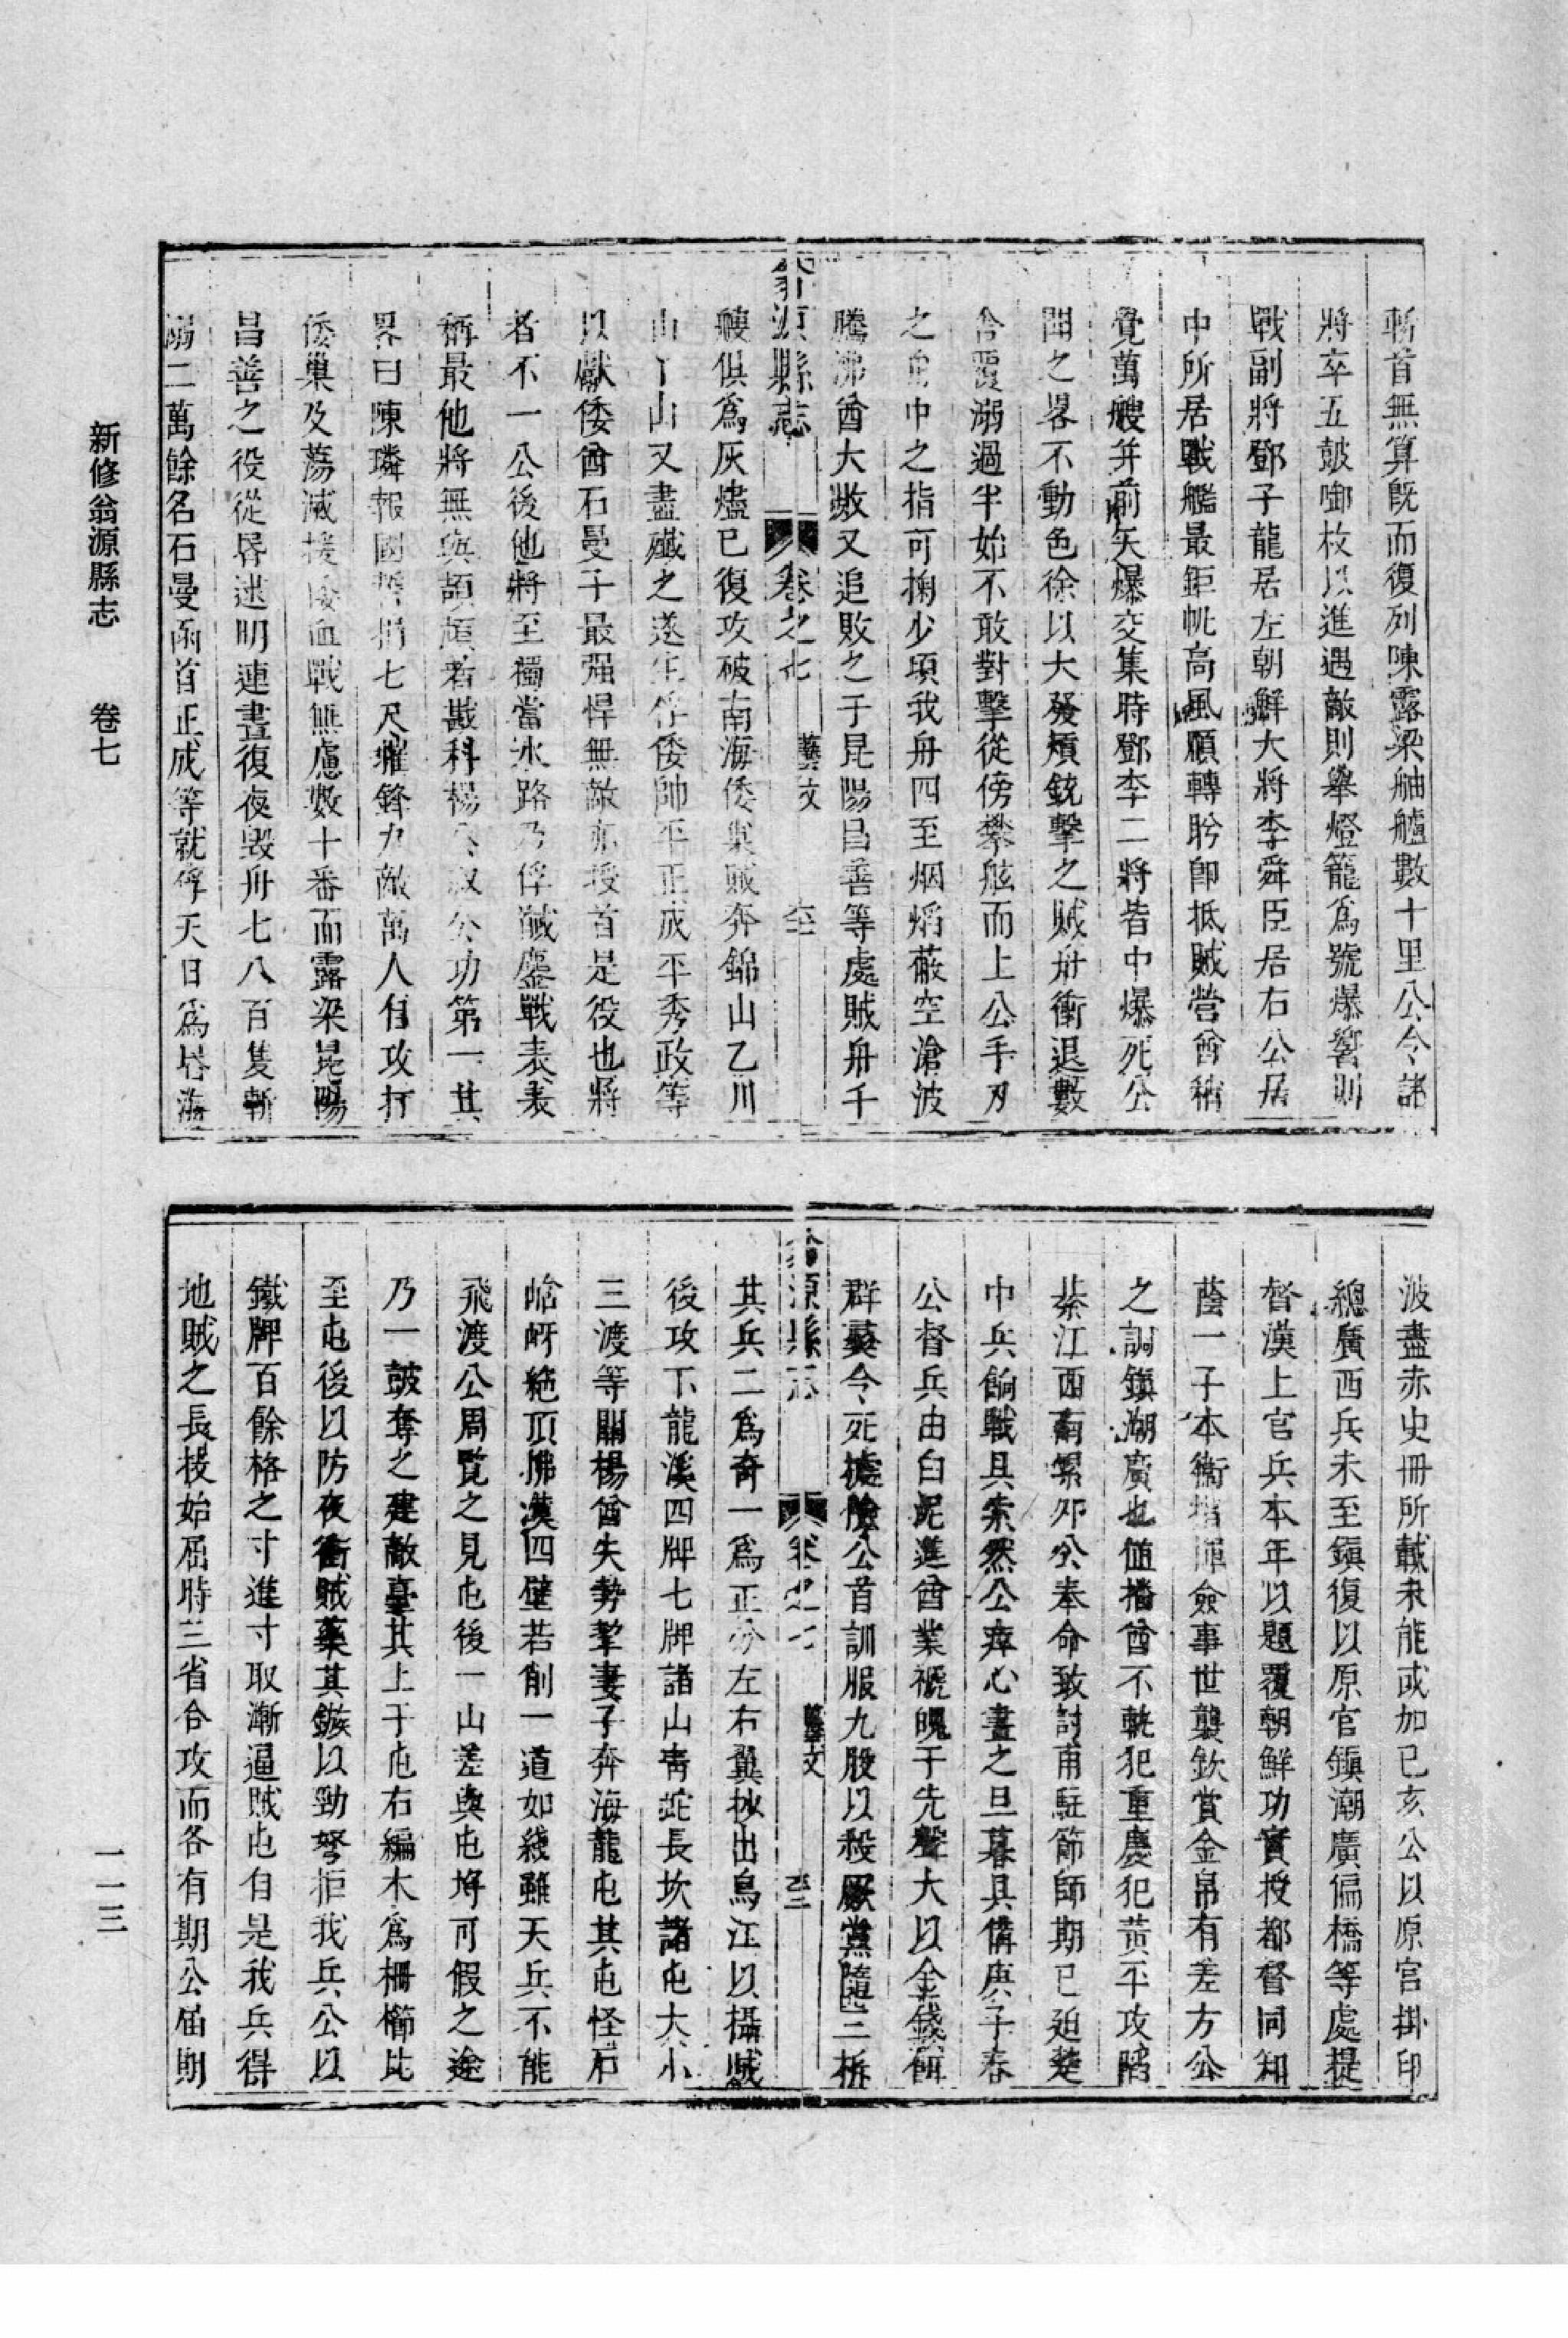 斬首無算既而復列陳露梁舳艫數十里公令諸
將卒五鼓啣枚以進遇敵則舉燈籠爲號爆響則
戰副將鄧子龍居左朝鮮大將李舜臣居右公居
中所居戰艦最鉅帆高風順轉盻卽抵賊營酋稍
覺萬艘并前矢爆交集時鄧李二將皆中爆死公
聞之畧不動色徐以大發熕銃擊之賊舟衝退數
舍覆溺過半始不敢對擊從傍攀舷而上公手刃
之舟中之指可掬少頃我舟四至烟焰蔽空滄波
騰沸酋大敗又追敗之于昆陽昌善等處賊舟千
翁源縣志 卷之七 藝文
艘俱爲灰燼已復攻破南海倭巢賊奔錦山乙川
山丫山又盡殲之遂生俘倭帥平正成平秀政等
以獻倭酋石曼子最强悍無敵亦授首是役也將
者不一公後他將至獨當水路乃俘馘鏖戰表表
稱最他將無與頡頏者戡科楊公敘公功第一其
畧曰陳璘報國誓捐七尺耀鋒力敵萬人自攻打
倭巢及蕩滅援倭血戰無慮數十番而露梁昆陽
昌善之役從昏逮明連晝復夜毁舟七八百隻斬
溺二萬餘名石曼函首正成等就俘天日爲昏海
波盡赤史冊所載未能或加己亥公以原官掛印
總廣西兵未至鎮復以原官鎮潮廣偏橋等處提
督漢土官兵本年以題覆朝鮮功實授都督同知
蔭一子本衛指揮僉事世襲欽賞金帛有差方公
之調鎮湖廣也値播酋不軌犯重慶犯黃平攻陷
綦江西南綮夘公奉命致討甫駐節師期已廹楚
中兵餉戰具索然公瘁心畫之旦暮具備庚子春
公督兵由白泥進酋業褫魄于先聲大以金錢餌
群葵令死據險公首訓服九股以殺厥黨隨三拆
翁源縣志 卷之七 藝文
其兵二爲奇一爲正分左右翼抄出烏江以攝賊
後攻下龍溪四牌七牌諸山靑蛇長坎諸屯大小
三渡等關楊酋失勢挈妻子奔海龍屯其屯怪石
㟏岈絶頂拂漢四壁若削一道如綫雖天兵不能
飛渡公周覽之見屯後一山差與屯埓可假之途
乃一鼓奪之建敵臺其上于屯右編木爲柵櫛比
至屯後以防夜衝賊藥其鏃以勁弩拒我兵公以
鐵牌百餘格之寸進寸取漸逼賊屯自是我兵得
地賊之長技始屈時三省合攻而各有期公届期
新修翁源縣志 卷七
一一三